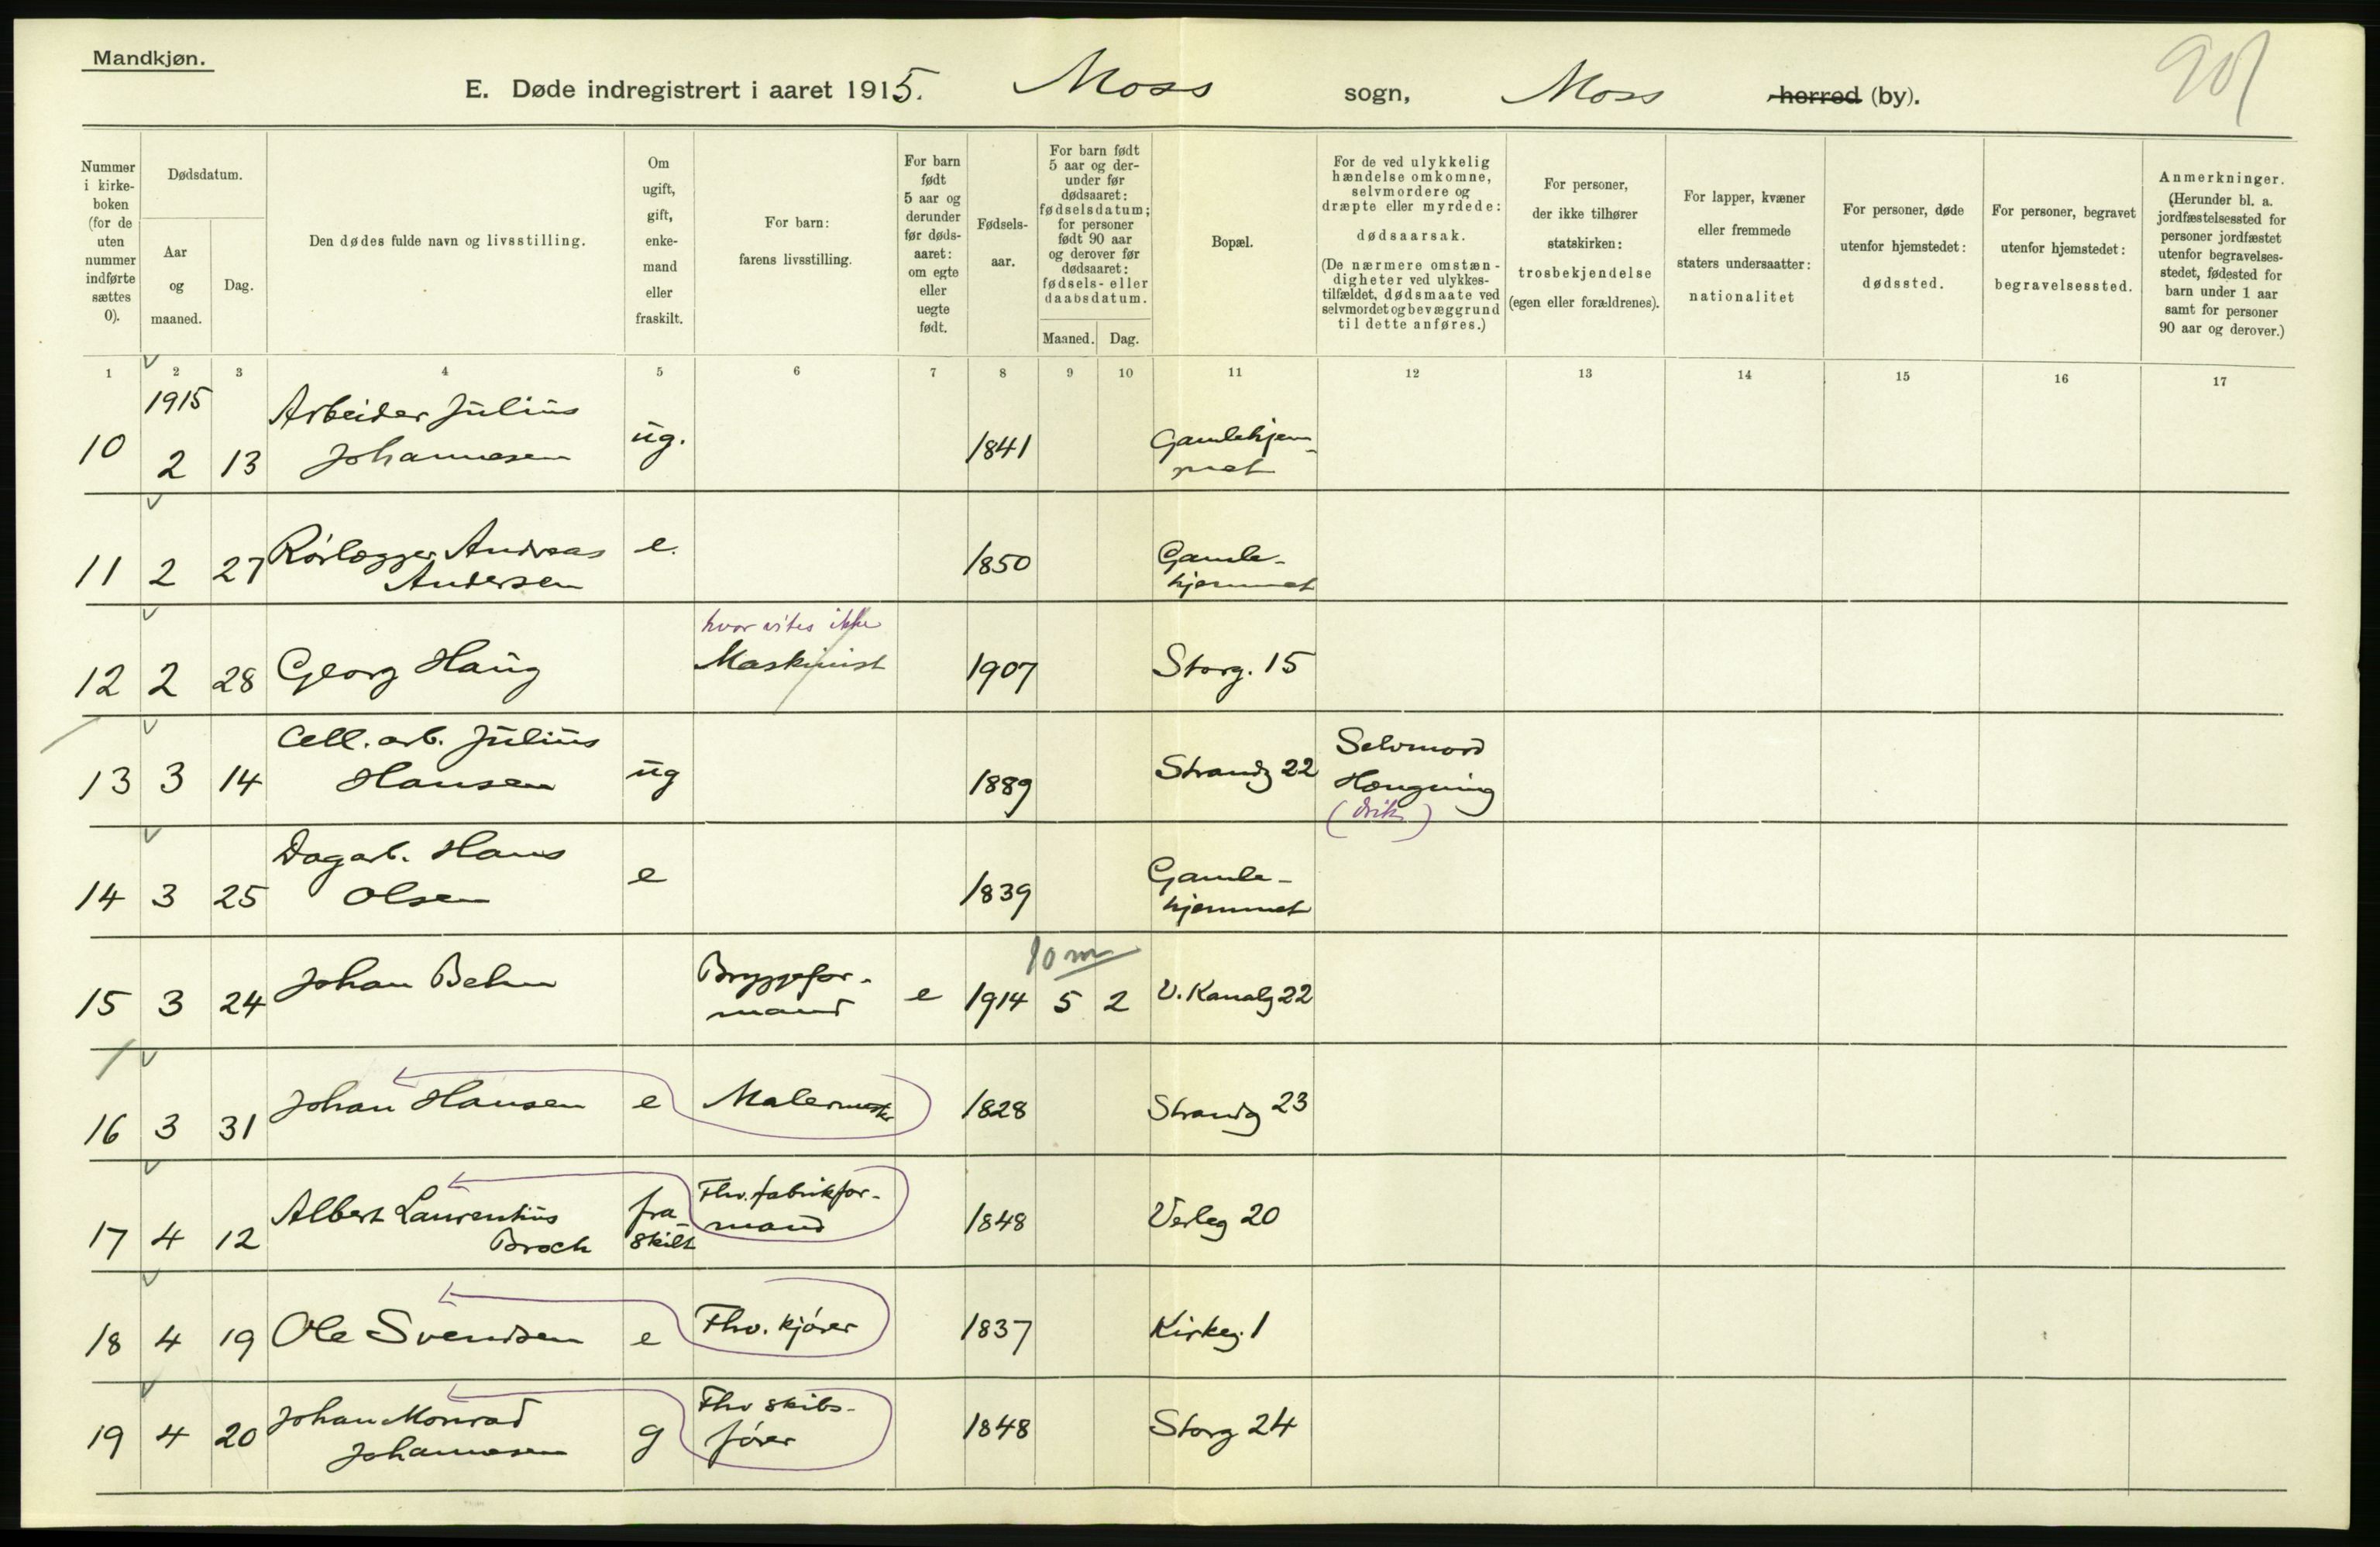 Mandkjøn.
E. Døde indregistrert i aaret 1915. Moss sogn, Moss herred (by).
901
Nummer i kirke-boken (for de uten nummer indførte sættes 0).
Dødsdatum.
Aar og maaned.
Dag.
Den dødes fulde navn og livsstilling.
Om ugift, gift, enke-mand eller fraskilt.
For barn: farens livsstilling.
For barn født 5 aar og derunder før døds-aaret: om egte eller uegte født.
Fødsels-aar.
For barn født 5 aar og der-under før dødsaaret: fødselsdatum; for personer født 90 aar og derover før dødsaaret: fødsels- eller daabsdatum.
Maaned. Dag.
Bopæl.
For de ved ulykkelig hændelse omkomne, selvmordere og dræpte eller myrdede: dødsaarsak.
(De nærmere omstæn-digheter ved ulykkes-tilfældet, dødsmaate ved selvmordet og bevæggrund til dette anføres.)
For personer, der ikke tilhører statskirken: trosbekjendelse (egen eller forældrenes).
For lapper, kvæner eller fremmede staters undersaatter: nationalitet
For personer, døde utenfor hjemstedet: dødssted.
For personer, begravet utenfor hjemstedet: begravelsessted.
Anmerkninger.
(Herunder bl. a. jordfæstelsessted for personer jordfæstet utenfor begravelses-stedet, fødested for barn under 1 aar samt for personer 90 aar og derover.)
1 2 3 4 5 6 7 8 9 10 11 12 13 14 15 16 17
1915
10 2 13 Arbeider Julius Johannesen ug. 1841 Gamlehjem-met
11 2 27 Rørlægger Andreas Andersen e. 1850 Gamle-hjemmet
hvor vites ikke
12 2 28 Georg Haug Maskinist 1907 Storg. 15
13 3 14 Cell. arb. Julius Hansen ug 1889 Strandg 22 Selvmord Hængning (drik)
14 3 25 Dagarb. Hans Olsen e 1839 Gamle-hjemmet
10 m
15 3 24 Johan Behn Bryggefor-mand e 1914 5 2 V. Kanalg 22
16 3 31 Johan Hansen e Malermester 1828 Strandg 23
17 4 12 Albert Laurentius Broch fra-skilt Fhv. fabrikfor-mand 1848 Verleg 20
18 4 19 Ole Svendsen e Fhv. kjører 1837 Kirkeg. 1
19 4 20 Johan Monrad Johannesen g Fhv skibs-fører 1848 Storg 24